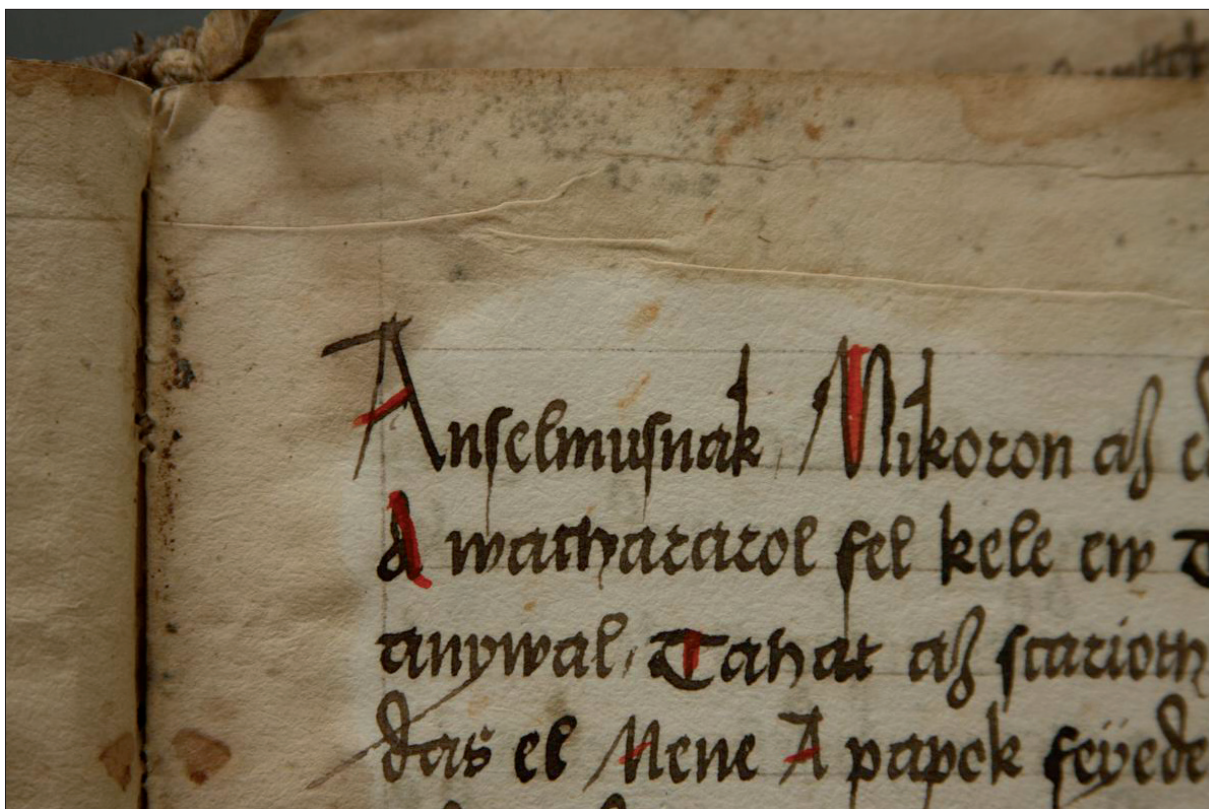 Anselmusnak, Mikoron aȥ
A wachararol fel kele ew
tanywal, Tahat aȥ scarioth
das el Mene A papok feÿede